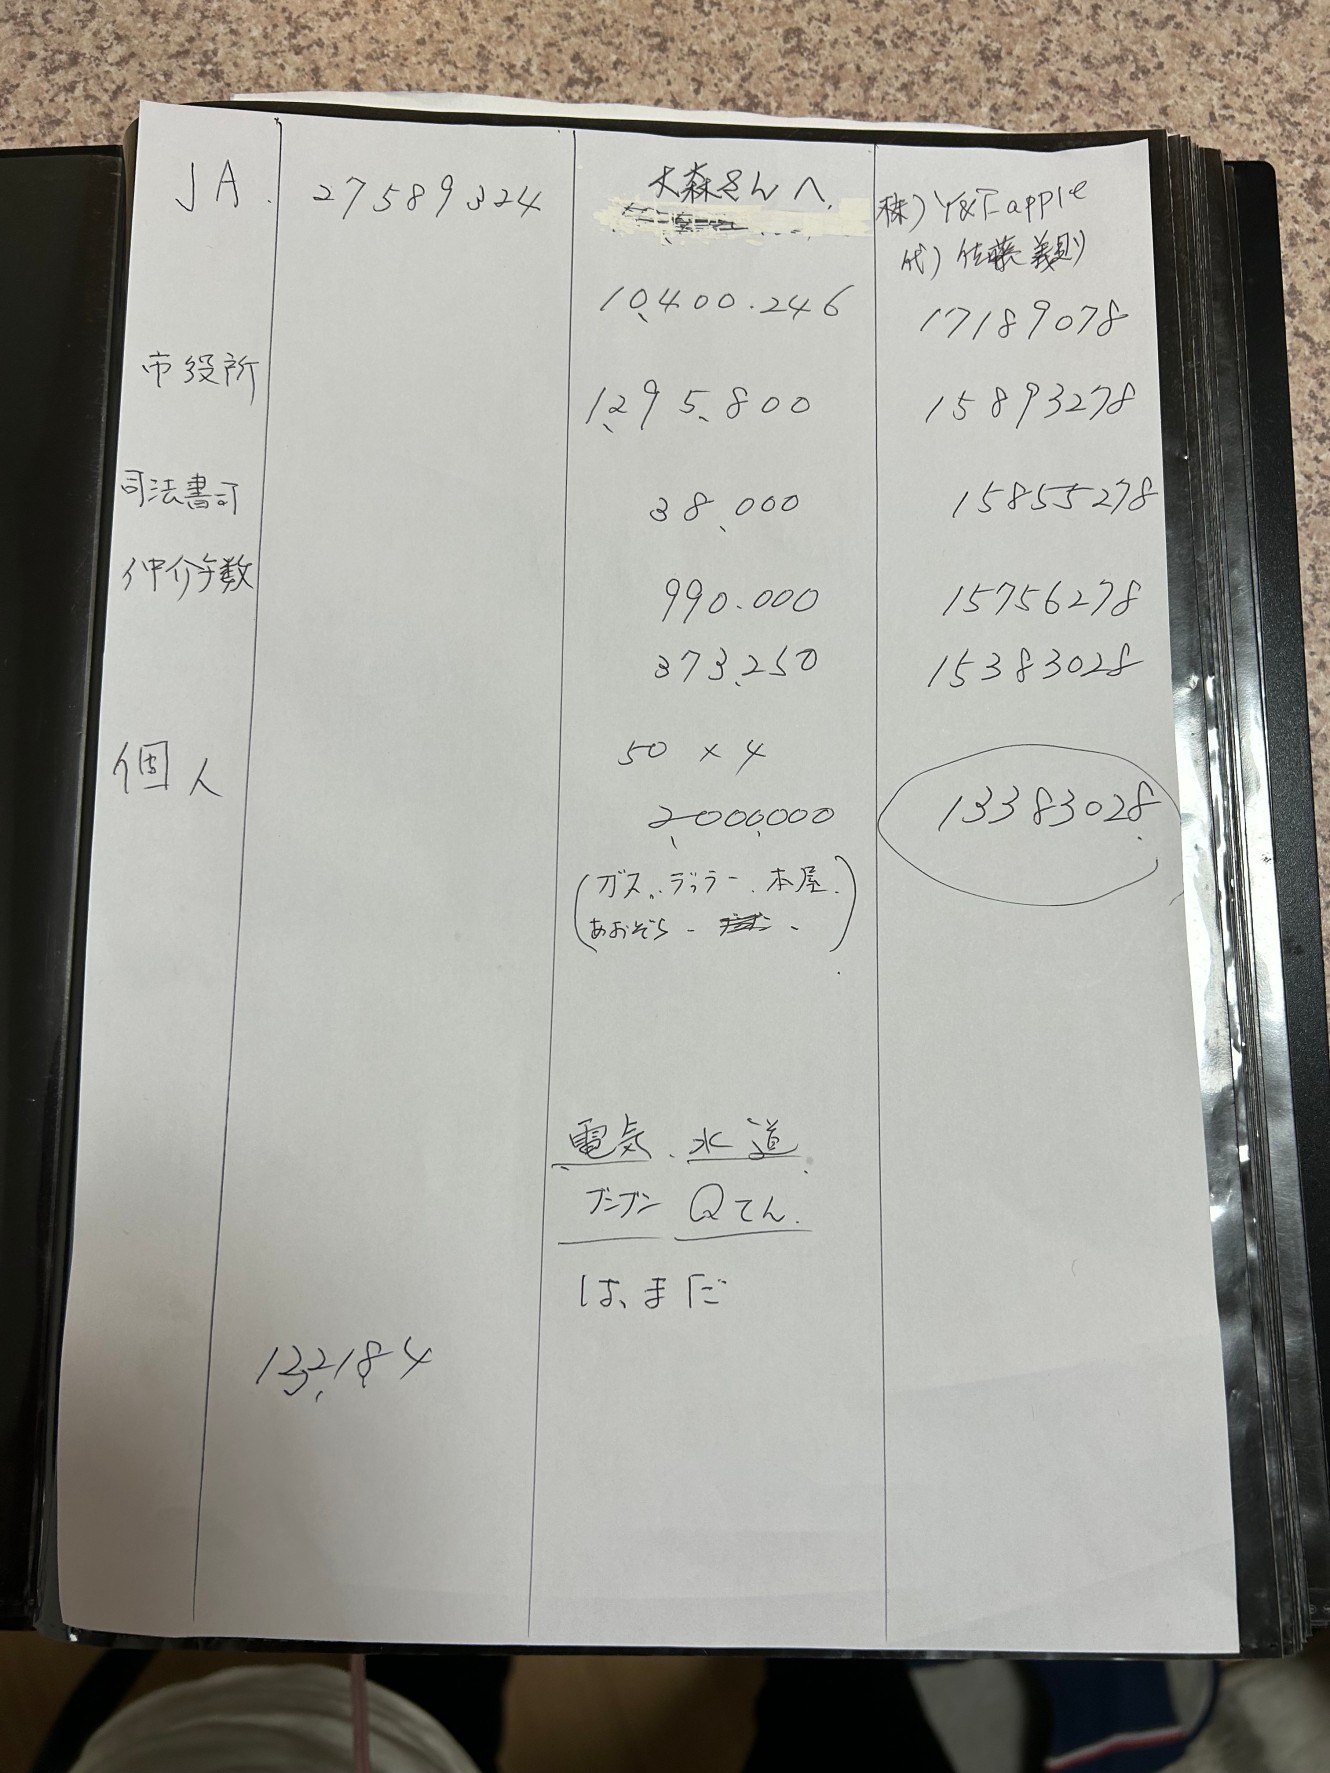 JA. 27589324 大森さんへ. 株)Y&T apple
代)佐藤義則
10,400.246 17189078
市役所 1,295,800 15893278
司法書司 38,000 15855278
仲介手数 990.000 15756278
373,250 15383028
50×4
個人 2,000,000 13383028
(ガス、ディラー、本屋.
あおぞら- )
電気、水道
ブンブン Qてん.
は、まだ
132,184